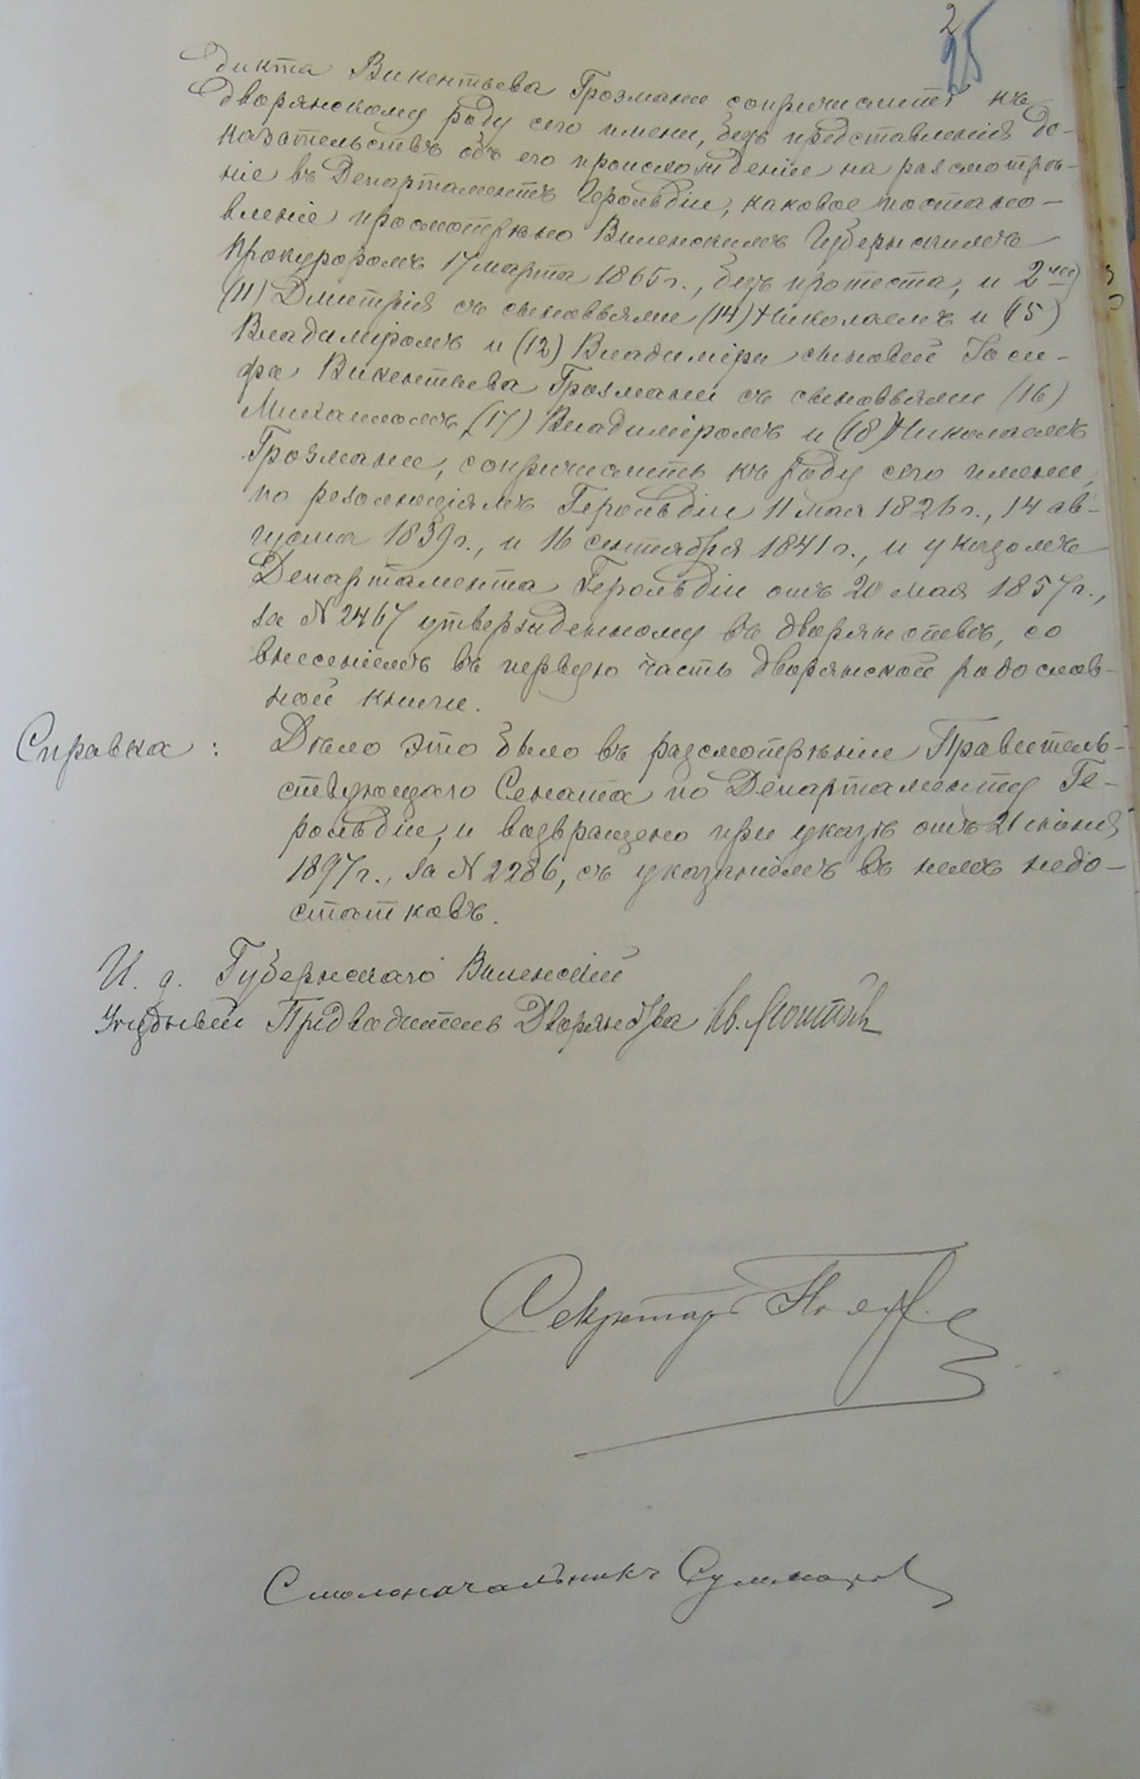 2
95
дикта Викентьева Грозмани сопричислитъ къ
дворянскому роду сего имени, безъ представленія до-
казательствъ объ его происхожденіи на разсмотрѣ-
ніе въ Департаментъ Герольдіи, каковое постано-
вленіе просмотрѣно Виленскимъ Губернскимъ
Прокуроромъ 17 марта 1865 г., безъ протеста, и 2
(11) Дмитрія съ сыновьями (14) Николаемъ и (15)
Владиміромъ и (12) Владиміра сыновей Іоси-
фа Викентьева Грозмани съ сыновьями (16)
Михаиломъ, (17) Владиміромъ и (18) Николаемъ
Грозмани, сопричислить къ роду сего имени,
по резолюціямъ Герольдіи 11 мая 1826 г., 14 ав-
густа 1839 г., и 16 сентября 1841 г., и указомъ
Департамента Герольдіи отъ 20 мая 1857 г.,
за N 2467 утвержденному въ дворянствѣ, со
внесеніемъ въ первую часть дворянской родослов-
ной книги.
Справка: Дѣло это было въ разсмотрѣніи Правитель-
ствующаго Сената по Департаменту Ге-
рольдіи, и возвращено при указѣ отъ 21 іюня
1897 г., за N 2286, съ указаніемъ въ немъ недо-
статковъ.
И. д. Губернскаго Виленскій
Уѣздный Предводитель Дворянства
Секретарь
Столоначальникъ